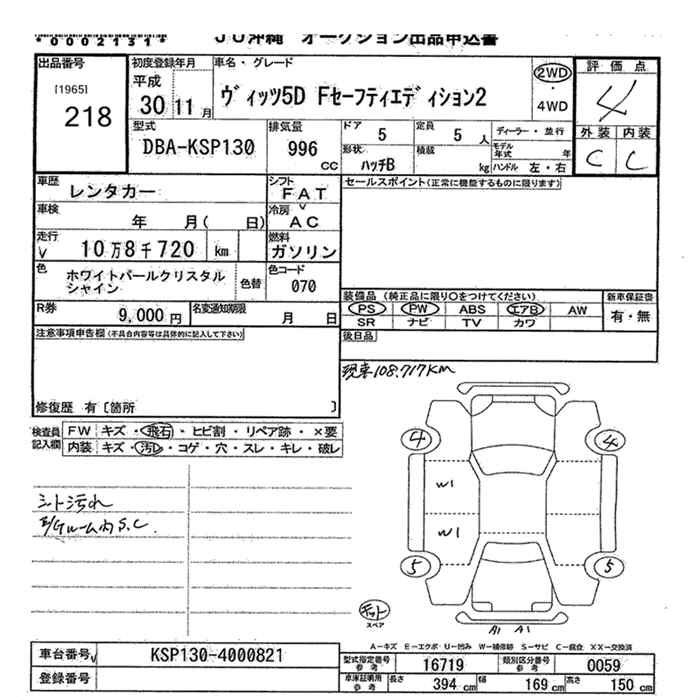 *0002131*
JU沖縄 オークション出品申込書
出品番号
[1965]
218
初度登録年月
平成
30 11月
車名・グレード
ヴィッツ5D Fセーフティエディション2
2WD
・
4WD
評価点
4
外装 内装
C C
型式
DBA-KSP130
排気量
996
CC
ドア
5
定員
5 人
ディーラー・並行
形状
ハッチB
積載
kg
モデル年式 年
ハンドル 左・右
車歴
レンタカー
シフト
FAT
セールスポイント(正常に機能するものに限ります)
車検
年 月( 日)
冷房
AC
走行
10万8千720 km
燃料
ガソリン
色
ホワイトパールクリスタル
シャイン
色替
色コード
070
装備品 (純正品に限り○をつけてください)
新車保証書
PS PW ABS エアB AW
有・無
SR ナビ TV カワ
R券
9,000円
名変通知期限
月 日
後日品
注意事項申告欄(不具合内容等は具体的に記入して下さい)
現車108.717KM
修復歴 有〔箇所 〕
検査員
記入欄
FW キズ・飛石・ヒビ割・リペア跡・×要
内装 キズ・汚レ・コゲ・穴・スレ・キレ・破レ
4 4
W1
シート汚れ
E/Gルーム内S.C.
W1
5 5
キット
スペア
A1 A1
A−キズ E−エクボ U−凹み W−補修跡 S−サビ C−腐食 XX−交換済
車台番号
KSP130-4000821
型式指定番号
参考
16719
類別区分番号
参考
0059
登録番号
車庫証明用
参考
長さ
394 cm
幅
169 cm
高さ
150 cm